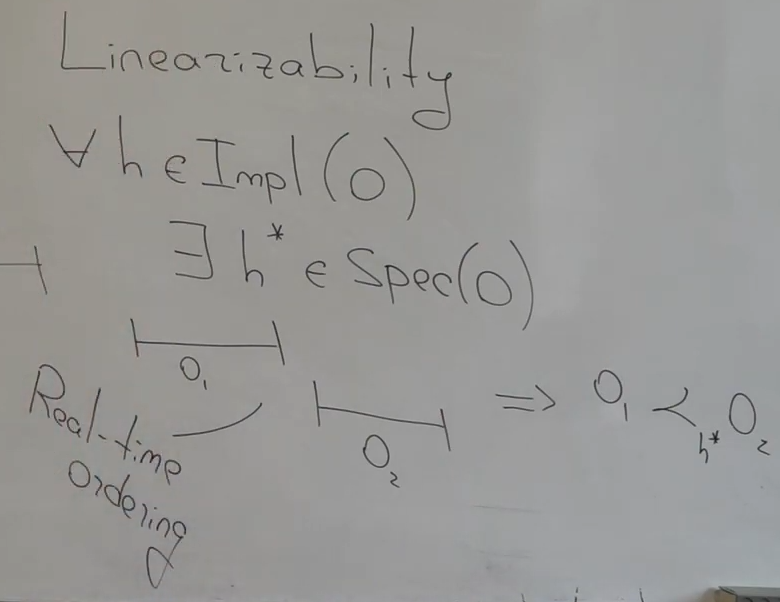 Linearizability
∀ h ∈ Impl(O)
∃ h* ∈ Spec(O)
O₁
O₂
⇒ O₁ ≺ₕ* O₂
Real-time
Ordering